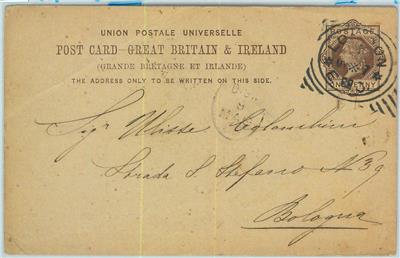 UNION POSTALE UNIVERSELLE
POST CARD–GREAT BRITAIN & IRELAND
(GRANDE BRETAGNE ET IRLANDE)
THE ADDRESS ONLY TO BE WRITTEN ON THIS SIDE.
POSTAGE
LONDON
E.C.
Sigr Ulisse Colombini
Strada S. Stefano N 39
Bologna